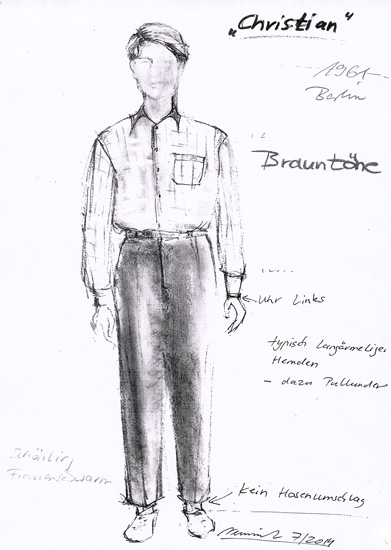 „Christian“
1961
Berlin
Brauntöne
Uhr Links
typisch langärmelige
Hemden
- dazu Pullunder
Schönling
Frauenschwarm
Kein Hosenumschlag
7/2014